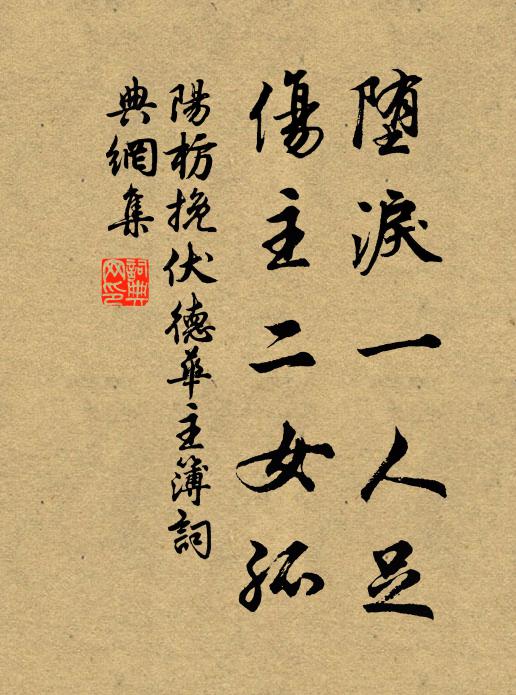 堕淚一人足
傷主二女孤
陽枋挽伏德華主簿詞
典網集
詞典網印